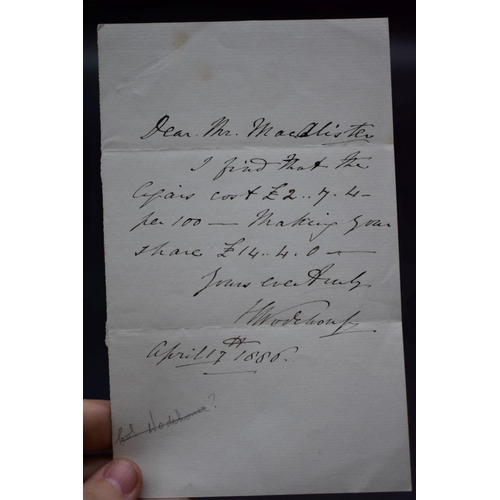 Dear Mr. MacAlister
I find that the
Cigars cost £2..7.4-
per 100 — Making your
share £14..4.0 —
Yours ever truly
HWodehouse
April 17th 1886.
Wodehouse?